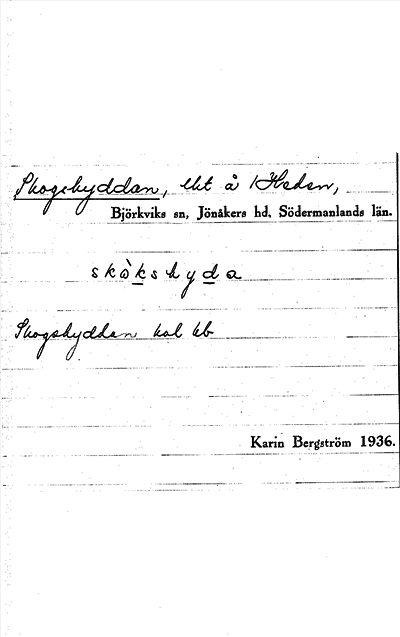 Skogshyddan, lht å Heden,
Björkviks sn, Jönåkers hd, Södermanlands län.
skòkshyda
Skogshyddan kb
Karin Bergström 1936.